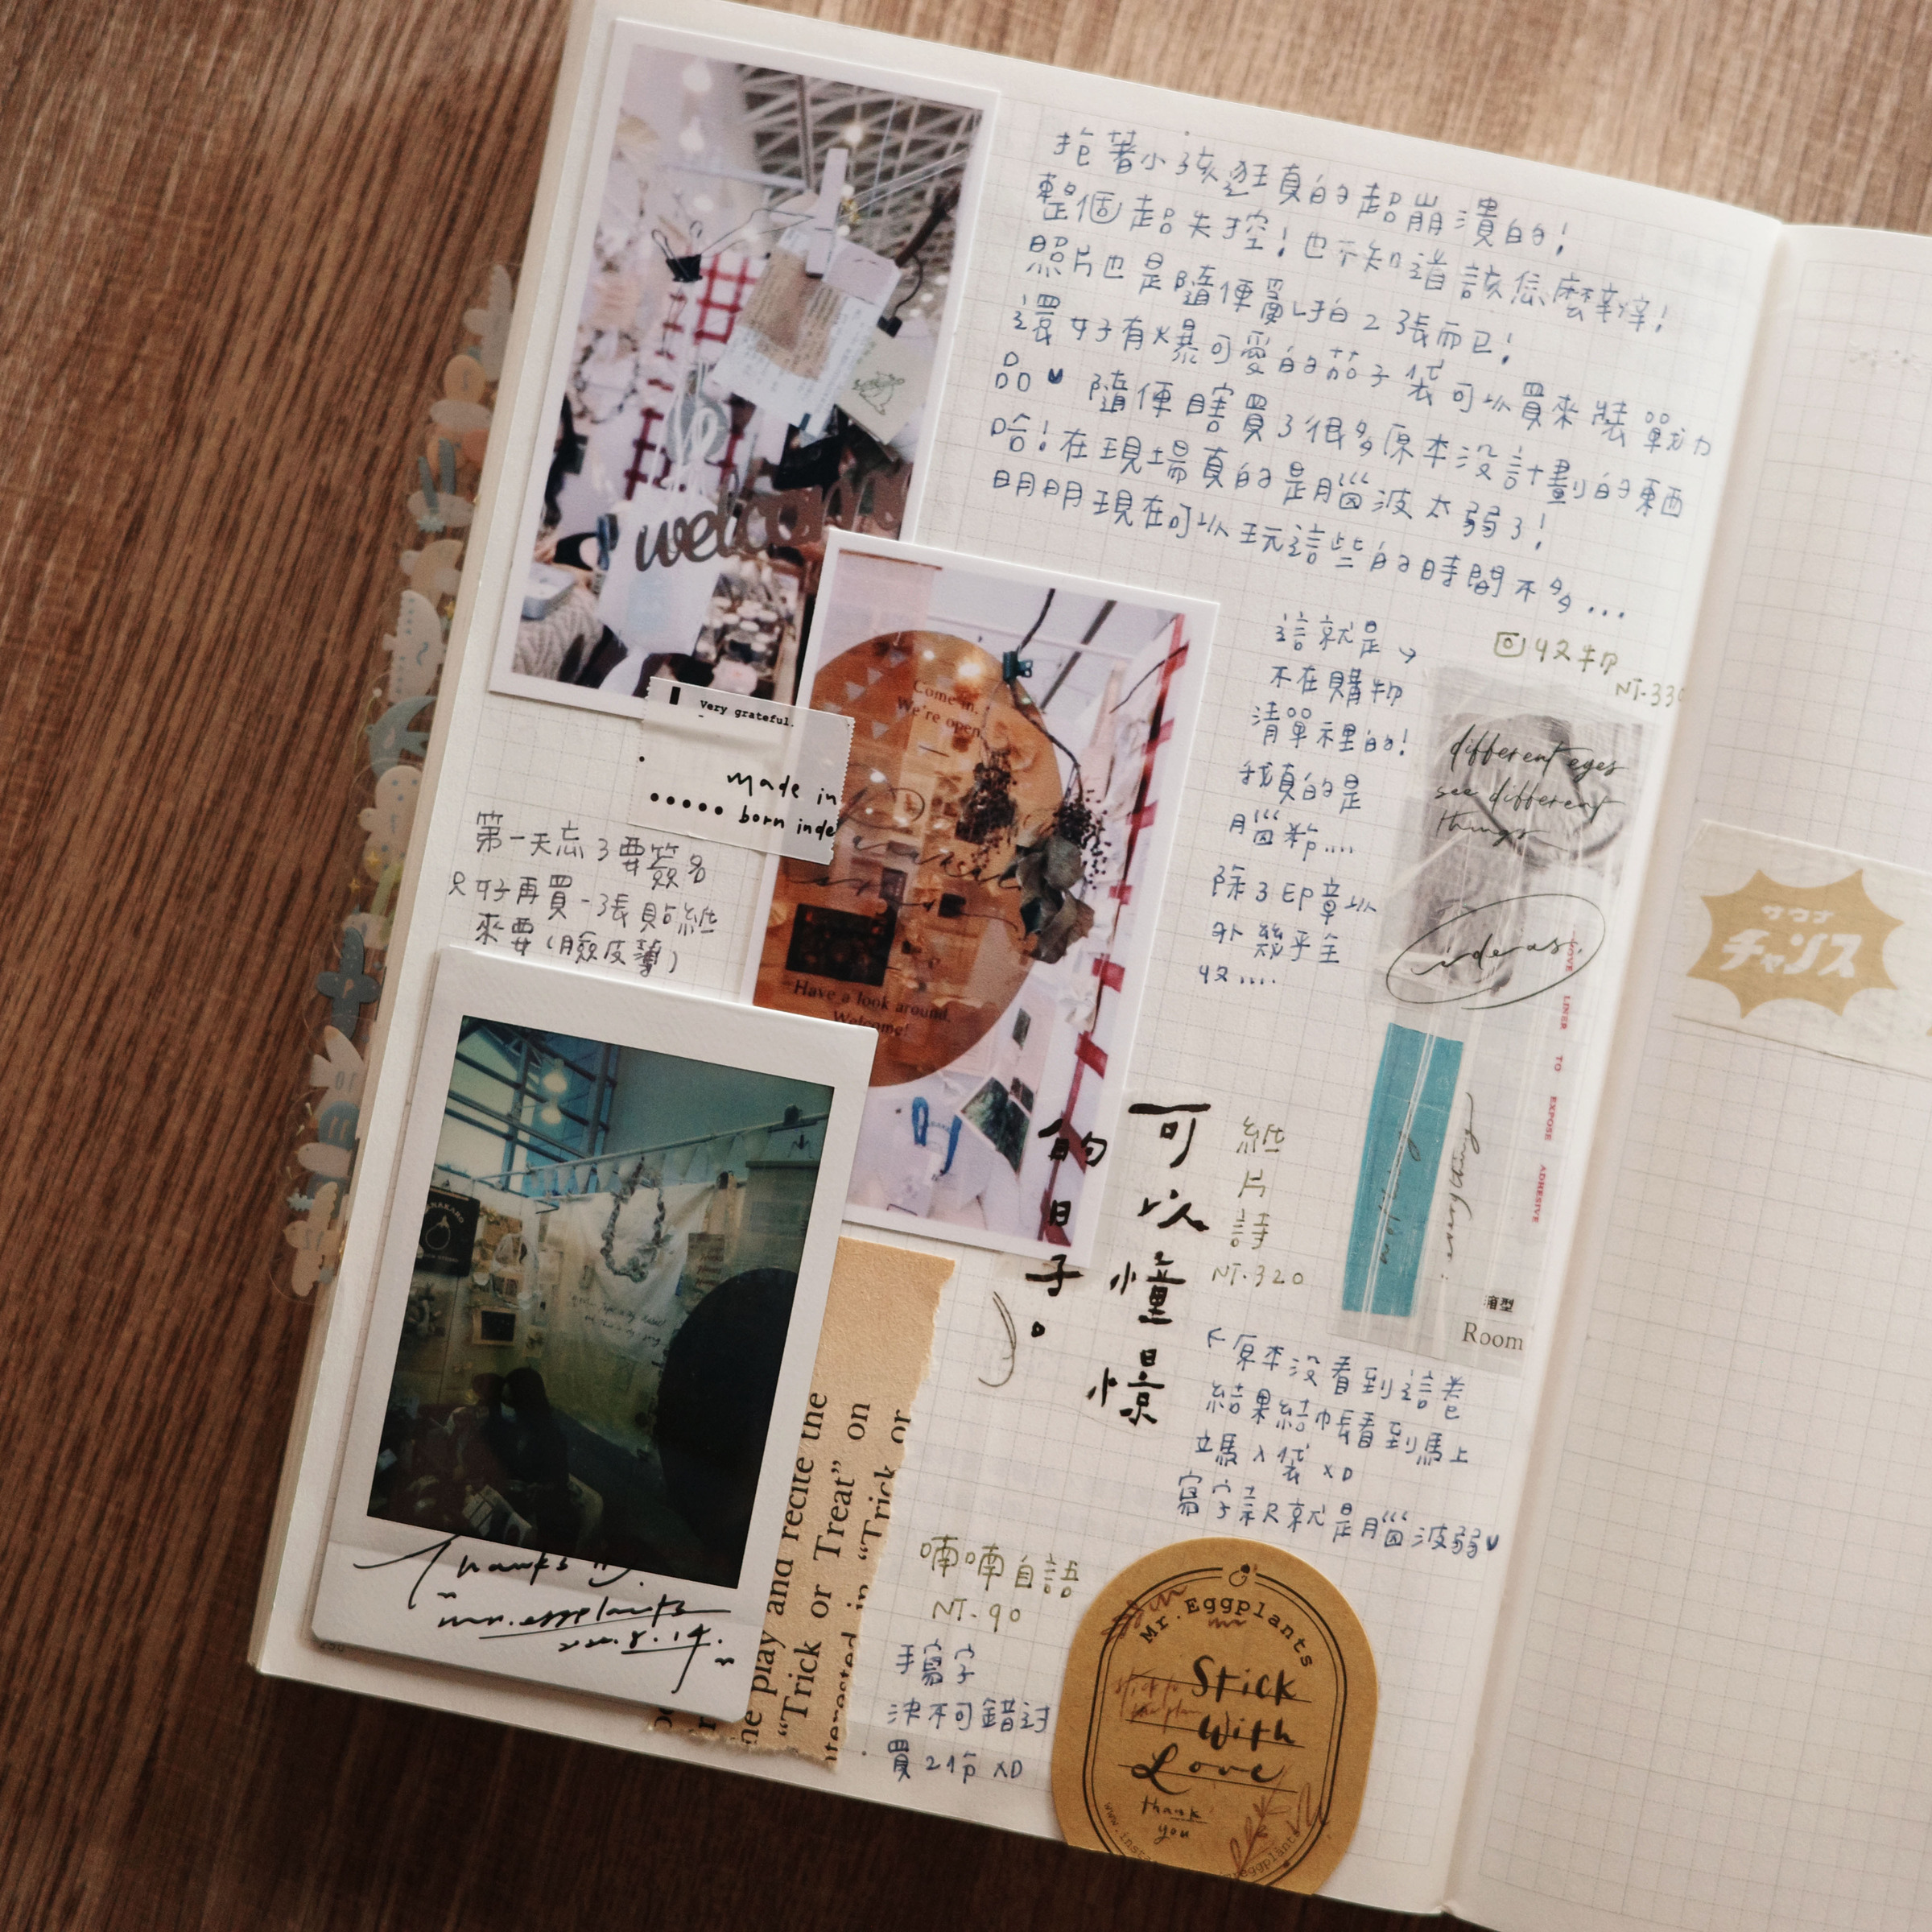 抱著小孩逛真的超崩潰的!
整個超失控!也不知道該怎麼辦!
照片也是隨便亂拍2張而已!
還好有爆可愛的茄子袋可以買來裝戰力
品 隨便瞎買了很多原本沒計劃的東西
哈!在現場真的是腦波太弱了!
明明現在可以玩這些的時間不多...
welcome
Come in.
We're open
Have a look around.
Welcome!
Very grateful.
made in
born inde
第一天忘了要簽名
只好再買一張貼紙
來要(臉皮薄)
這就是→
不在購物
清單裡的!
我真的是
腦粉....
除了印章以
外幾乎全
收....
回收物
NT.330
different eyes
see different
things
ideas.
LOVE LINER TO EXPOSE ADHESIVE
everything
溶型
Room
サウナ
チャンス
可以憧憬
的日子。
紙片詩
NT.320
←原本沒看到這卷
結果結帳看到馬上
立馬入袋XD
寫字款就是腦波弱
喃喃自語
NT.90
手寫字
決不可錯過
買2份XD
Thanks
mr.eggplants
8.14.
the play and recite the
"Trick or Treat" on
interested in "Trick or
Mr.Eggplants
Stick
With
Love
thank
you